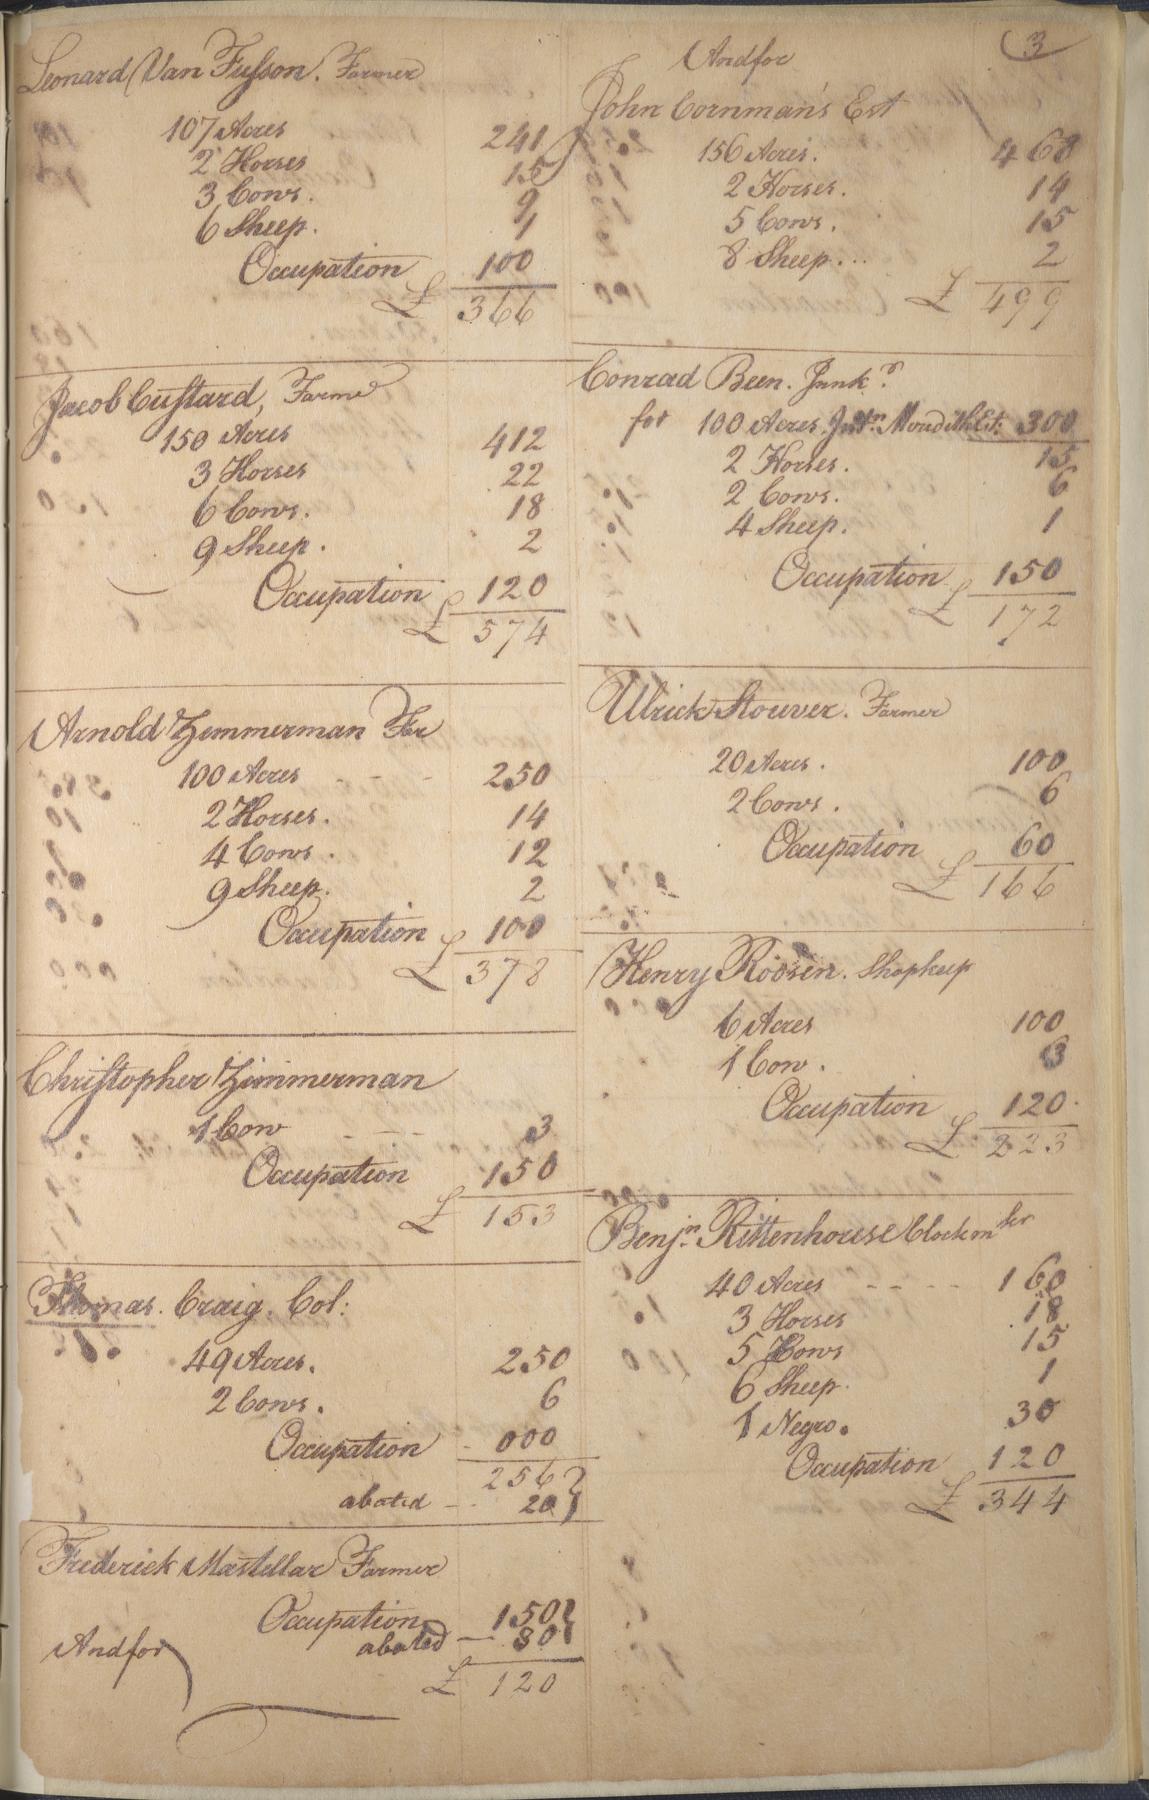 Leonard Van Fusson. Farmer
107 Acres 241
2 Horses 15
3 Cows. 9
6 Sheep. 1
Occupation 100
£ 366
Jacob Custard, Farmr
150 Acres 412
3 Horses 22
6 Cows. 18
9 Sheep. 2
Occupation £ 120
£ 574
Arnold Zimmerman Far
100 Acres - - - 250
2 Horses. 14
4 Cows. 12
9 Sheep. 2
Occupation £ 100
£ 378
Christopher Zimmerman
1 Cow - - - 3
Occupation 150
£ 153
Thomas. Craig. Col:
49 Acres. 250
2 Cows. 6
Occupation - 000
256
abated - 20
Frederick Mastellar Farmer
Occupation 150
abated - 30
£ 120
Andfor
3
Andfor
John Cornman's Est
156 Acres. 468
2 Horses. 14
5 Cows. 15
8 Sheep... 2
£ 499
Conrad Been. Junkr.
for 100 Acres. Est: 300
2 Horses. 15
2 Cows. 6
4 Sheep. 1
Occupation £ 150
£ 172
Ulrick Stouver. Farmer
20 Acres. 100
2 Cows. 6
Occupation 60
£ 166
Henry Roosen. Shopkeep
6 Acres 100
1 Cow. 3
Occupation 120
£ 223
Benjn. Rittenhouse Clockmker
40 Acres - - - - 160
3 Horses 18
5 Cows 15
6 Sheep. 1
1 Negro. 30
Occupation 120
£ 344